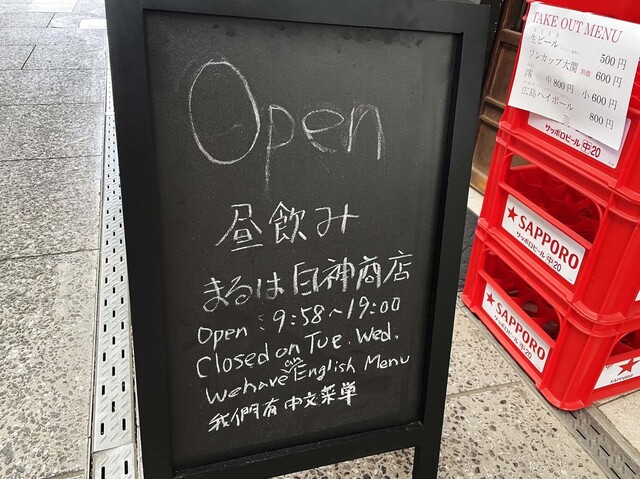 Open
昼飲み
まるは白神商店
Open : 9:58~19:00
Closed on Tue. Wed.
We have an English Menu
我們有中文菜単
TAKE OUT MENU
生ビール 500円
ワンカップ大関 熱燗 600円
澪 中800円 小600円
広島ハイボール 800円
サッポロビール 中20
★SAPPORO
サッポロビール 中20
★SAPPORO
サッポロビール 中20